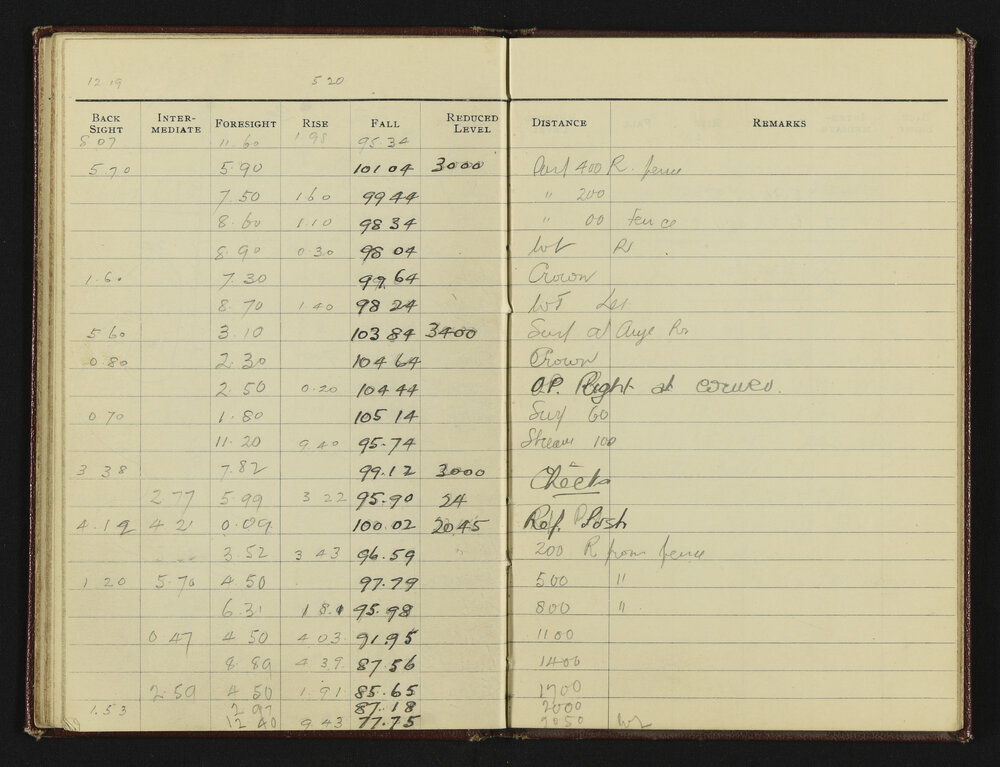 12 19 5 20
BACK SIGHT INTER-MEDIATE FORESIGHT RISE FALL REDUCED LEVEL DISTANCE REMARKS
5 07 11 60 1 98 95.34
5.70 5.90 101 04 3000 400 R. fence
7 50 1 60 99 44 " 200
8.60 1.10 98 34 " 00 Fence
8.90 0.30 98 04
1.60 7.30 99 64 Crown
8.70 1 40 98 24
5 60 3.10 103 84 3400 Surf at
0.80 2.30 104 64 Crown
2.50 0.20 104 44 O.P. Right at corner.
0 70 1.80 105 14 Surf 60
11.20 9 40 95.74 Stream 100
3 38 7.82 99.12 3000 Check
2 77 5 99 3 22 95.90 24
4.19 4 21 0.09 100.02 2045 Ref. Posh
3 52 3 43 96.59 200 R from fence
1 20 5.70 4.50 97.79 500 "
6.31 1 8.1 95.98 800 "
0 47 4 50 4 03 91.95 1100
8 89 4 39 87.56 1400
2.59 4 50 1.91 85.65 1700
1.53 2 97 87.18 2000
12 40 9 43 77.75 2050